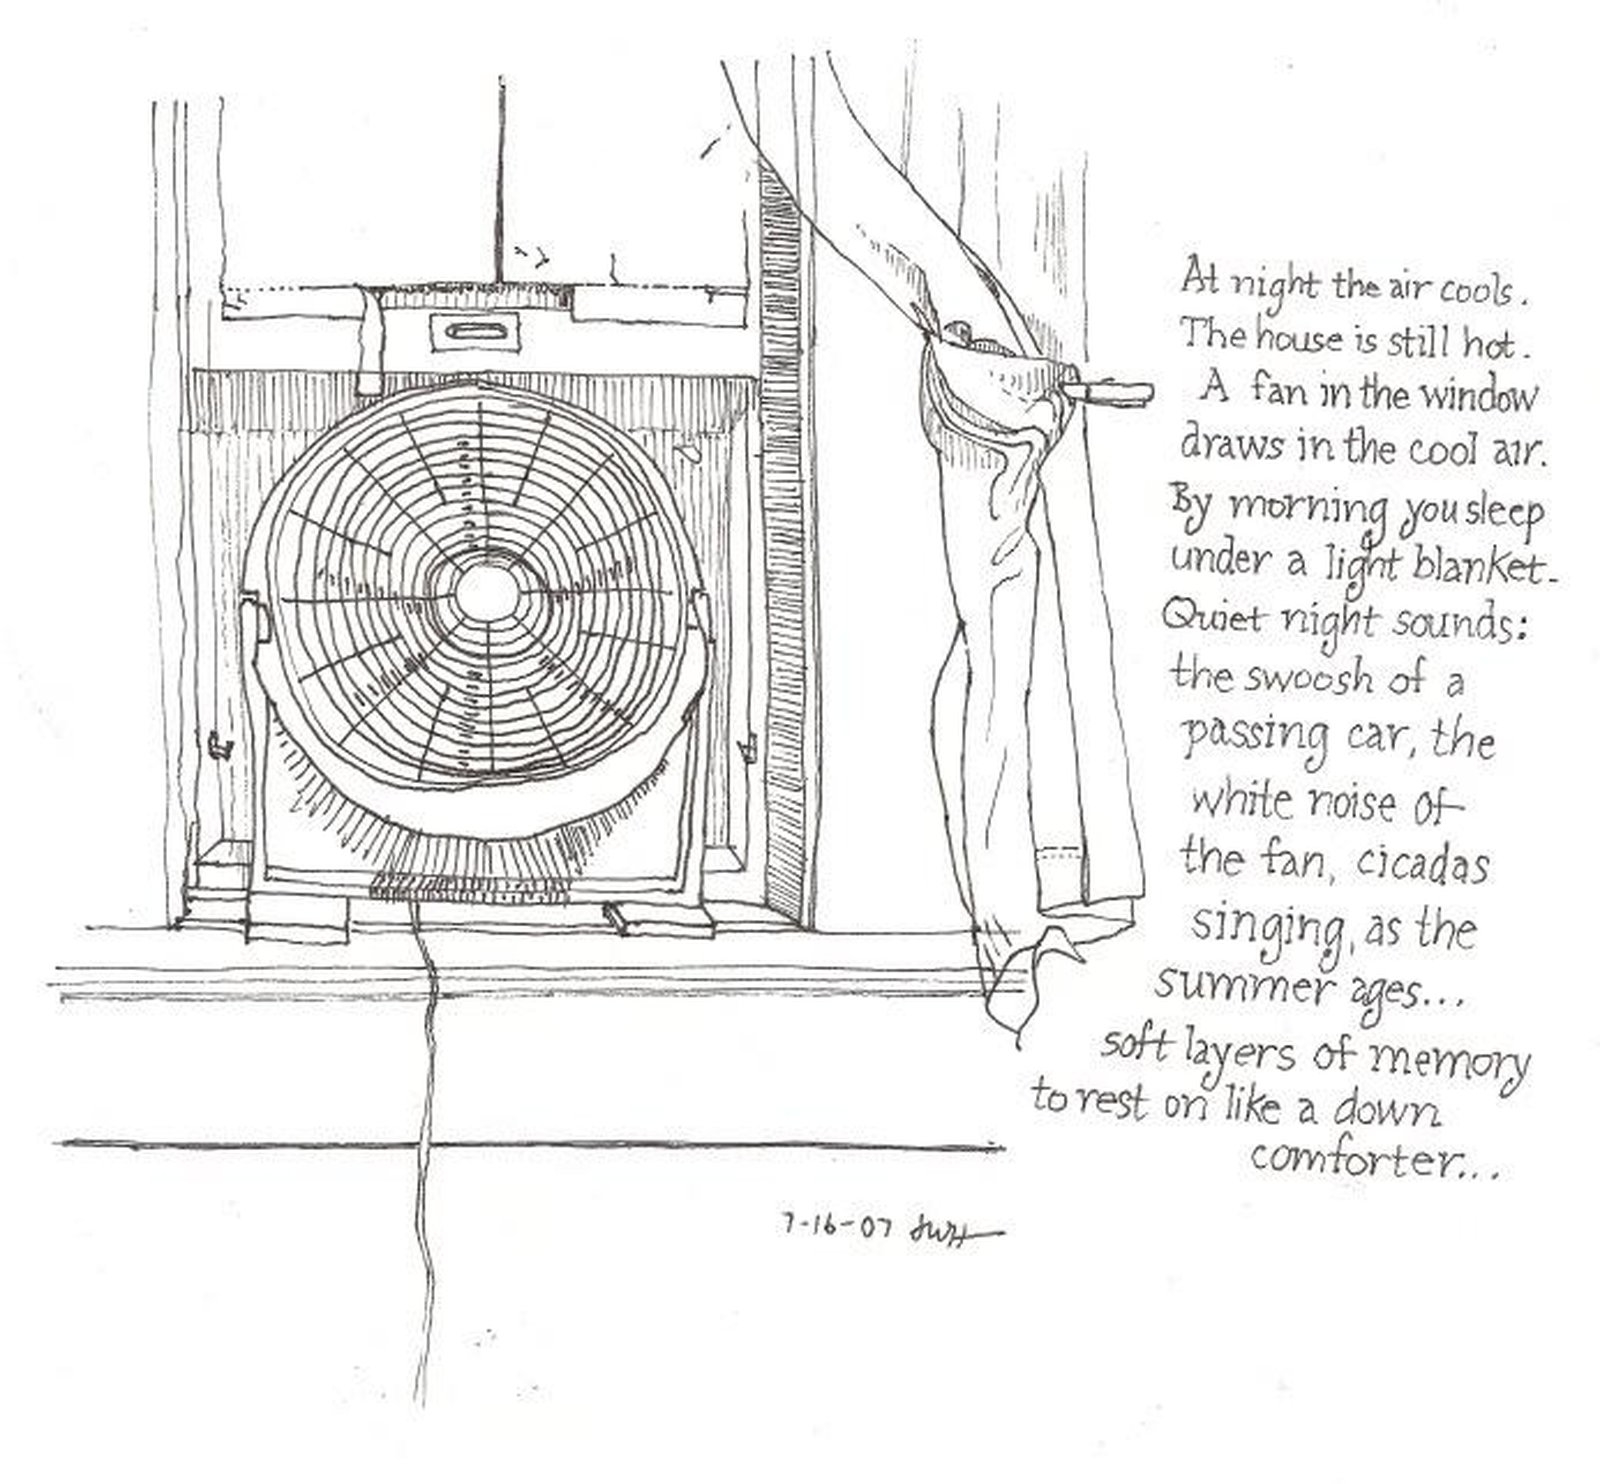 At night the air cools.
The house is still hot.
A fan in the window
draws in the cool air.
By morning you sleep
under a light blanket.
Quiet night sounds:
the swoosh of a
passing car, the
white noise of
the fan, cicadas
singing, as the
summer ages...
soft layers of memory
to rest on like a down
comforter...
7-16-07 JWH